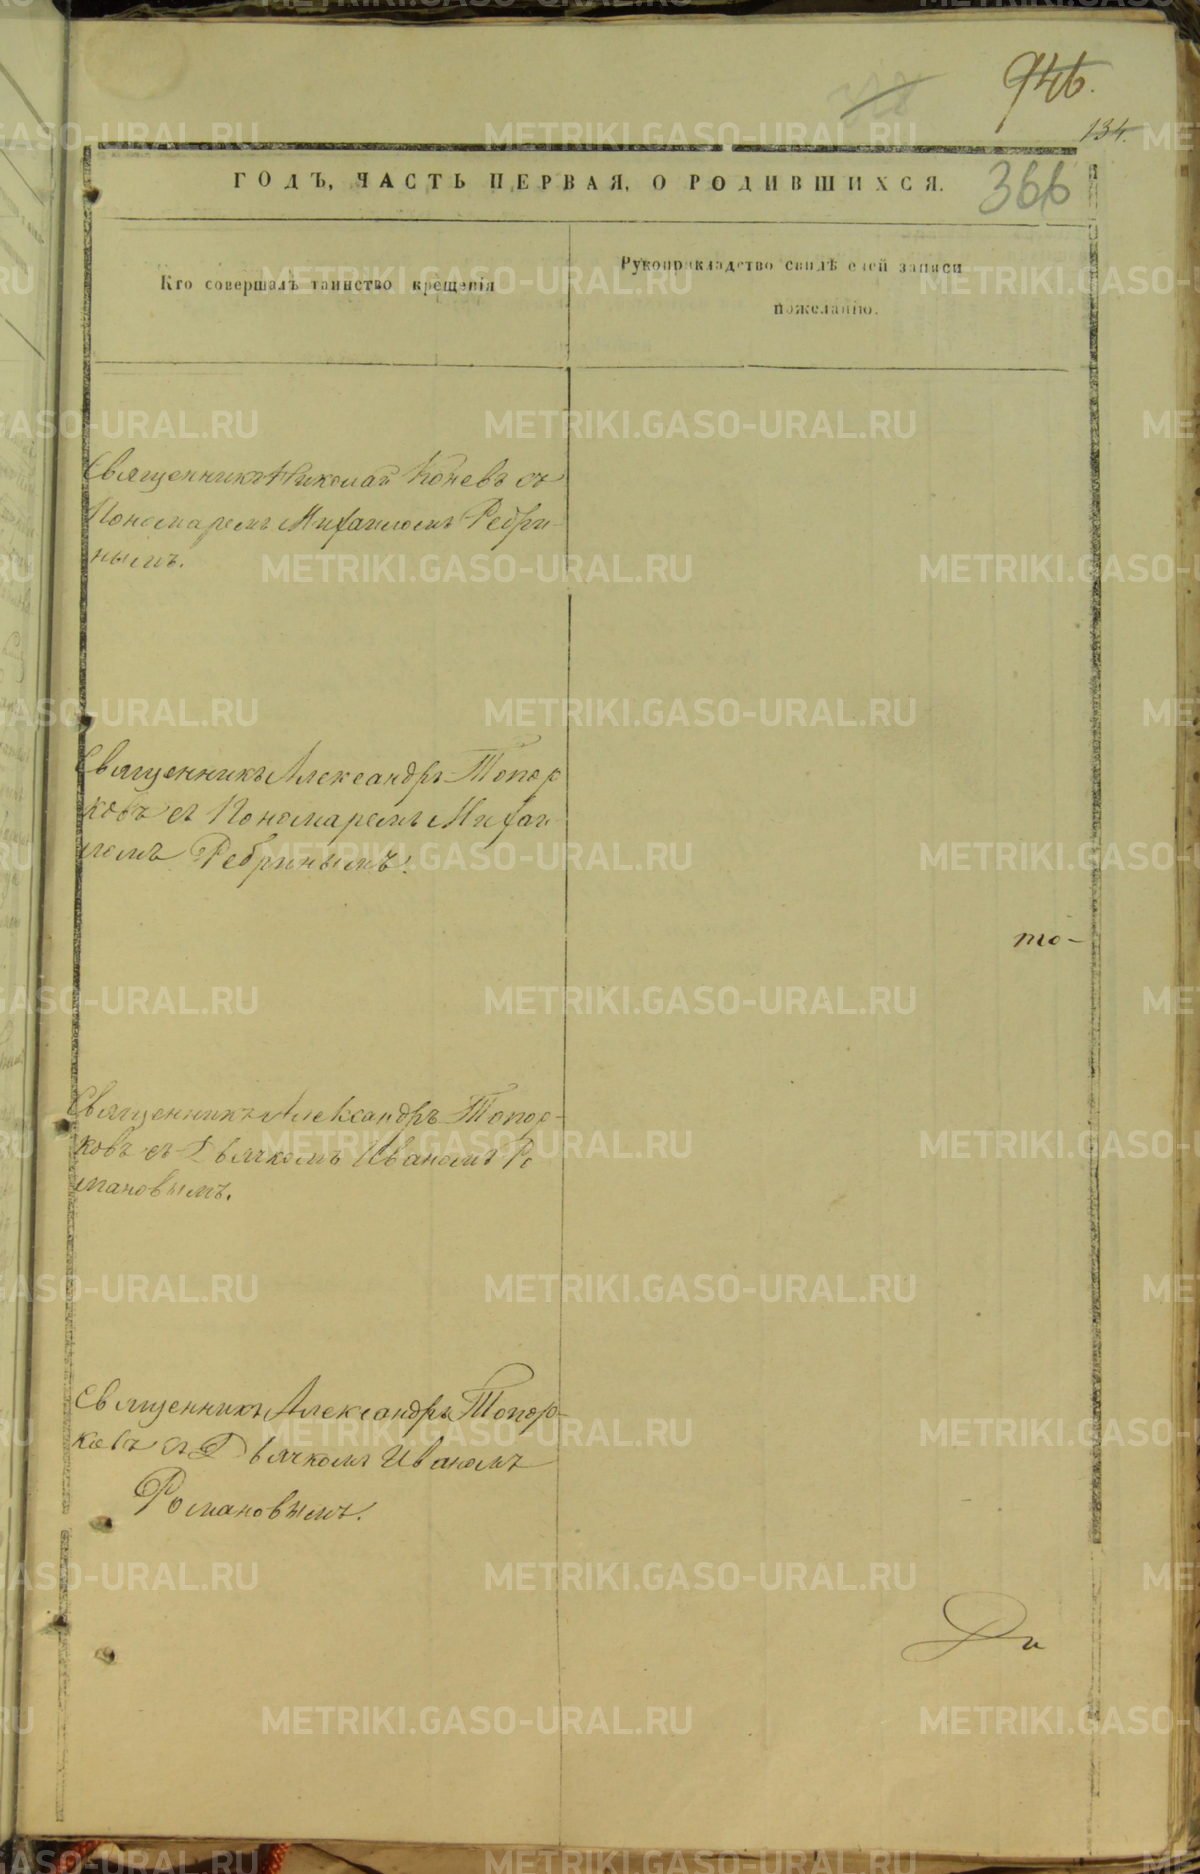 946.
134.
ГОДЪ, ЧАСТЬ ПЕРВАЯ, О РОДИВШИХСЯ.
366
Кто совершалъ таинство крещенія
Рукоприкладство свидѣтелей записи
пожеланію.
Священникъ Николай Коневъ съ
Пономаремъ Михаиломъ Ребри-
нымъ.
Священникъ Александръ Топор
ковъ съ Пономаремъ Михаи-
ломъ Ребринымъ.
то-
Священникъ Александръ Топор-
ковъ съ Дьячкомъ Иваномъ Ро
мановымъ.
Священникъ Александръ Топор-
ковъ съ Дьячкомъ Иваномъ
Романовымъ.
METRIKI.GASO-URAL.RU